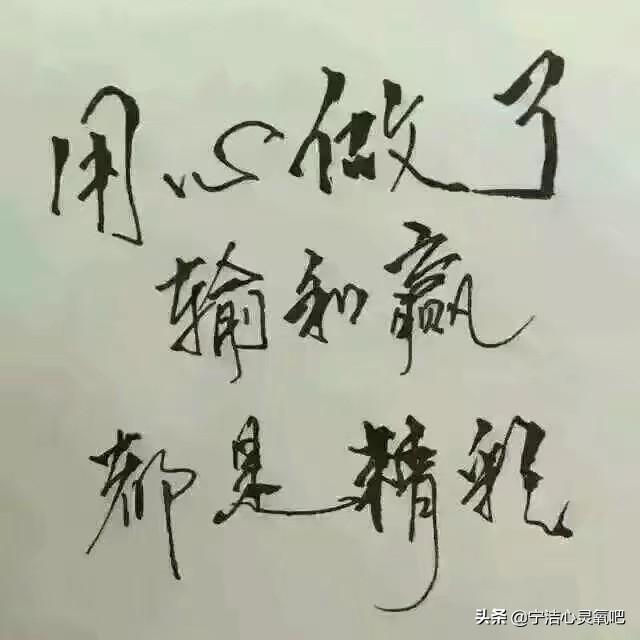 用心做了
输和赢
都是精彩
头条 @宁洁心灵氧吧